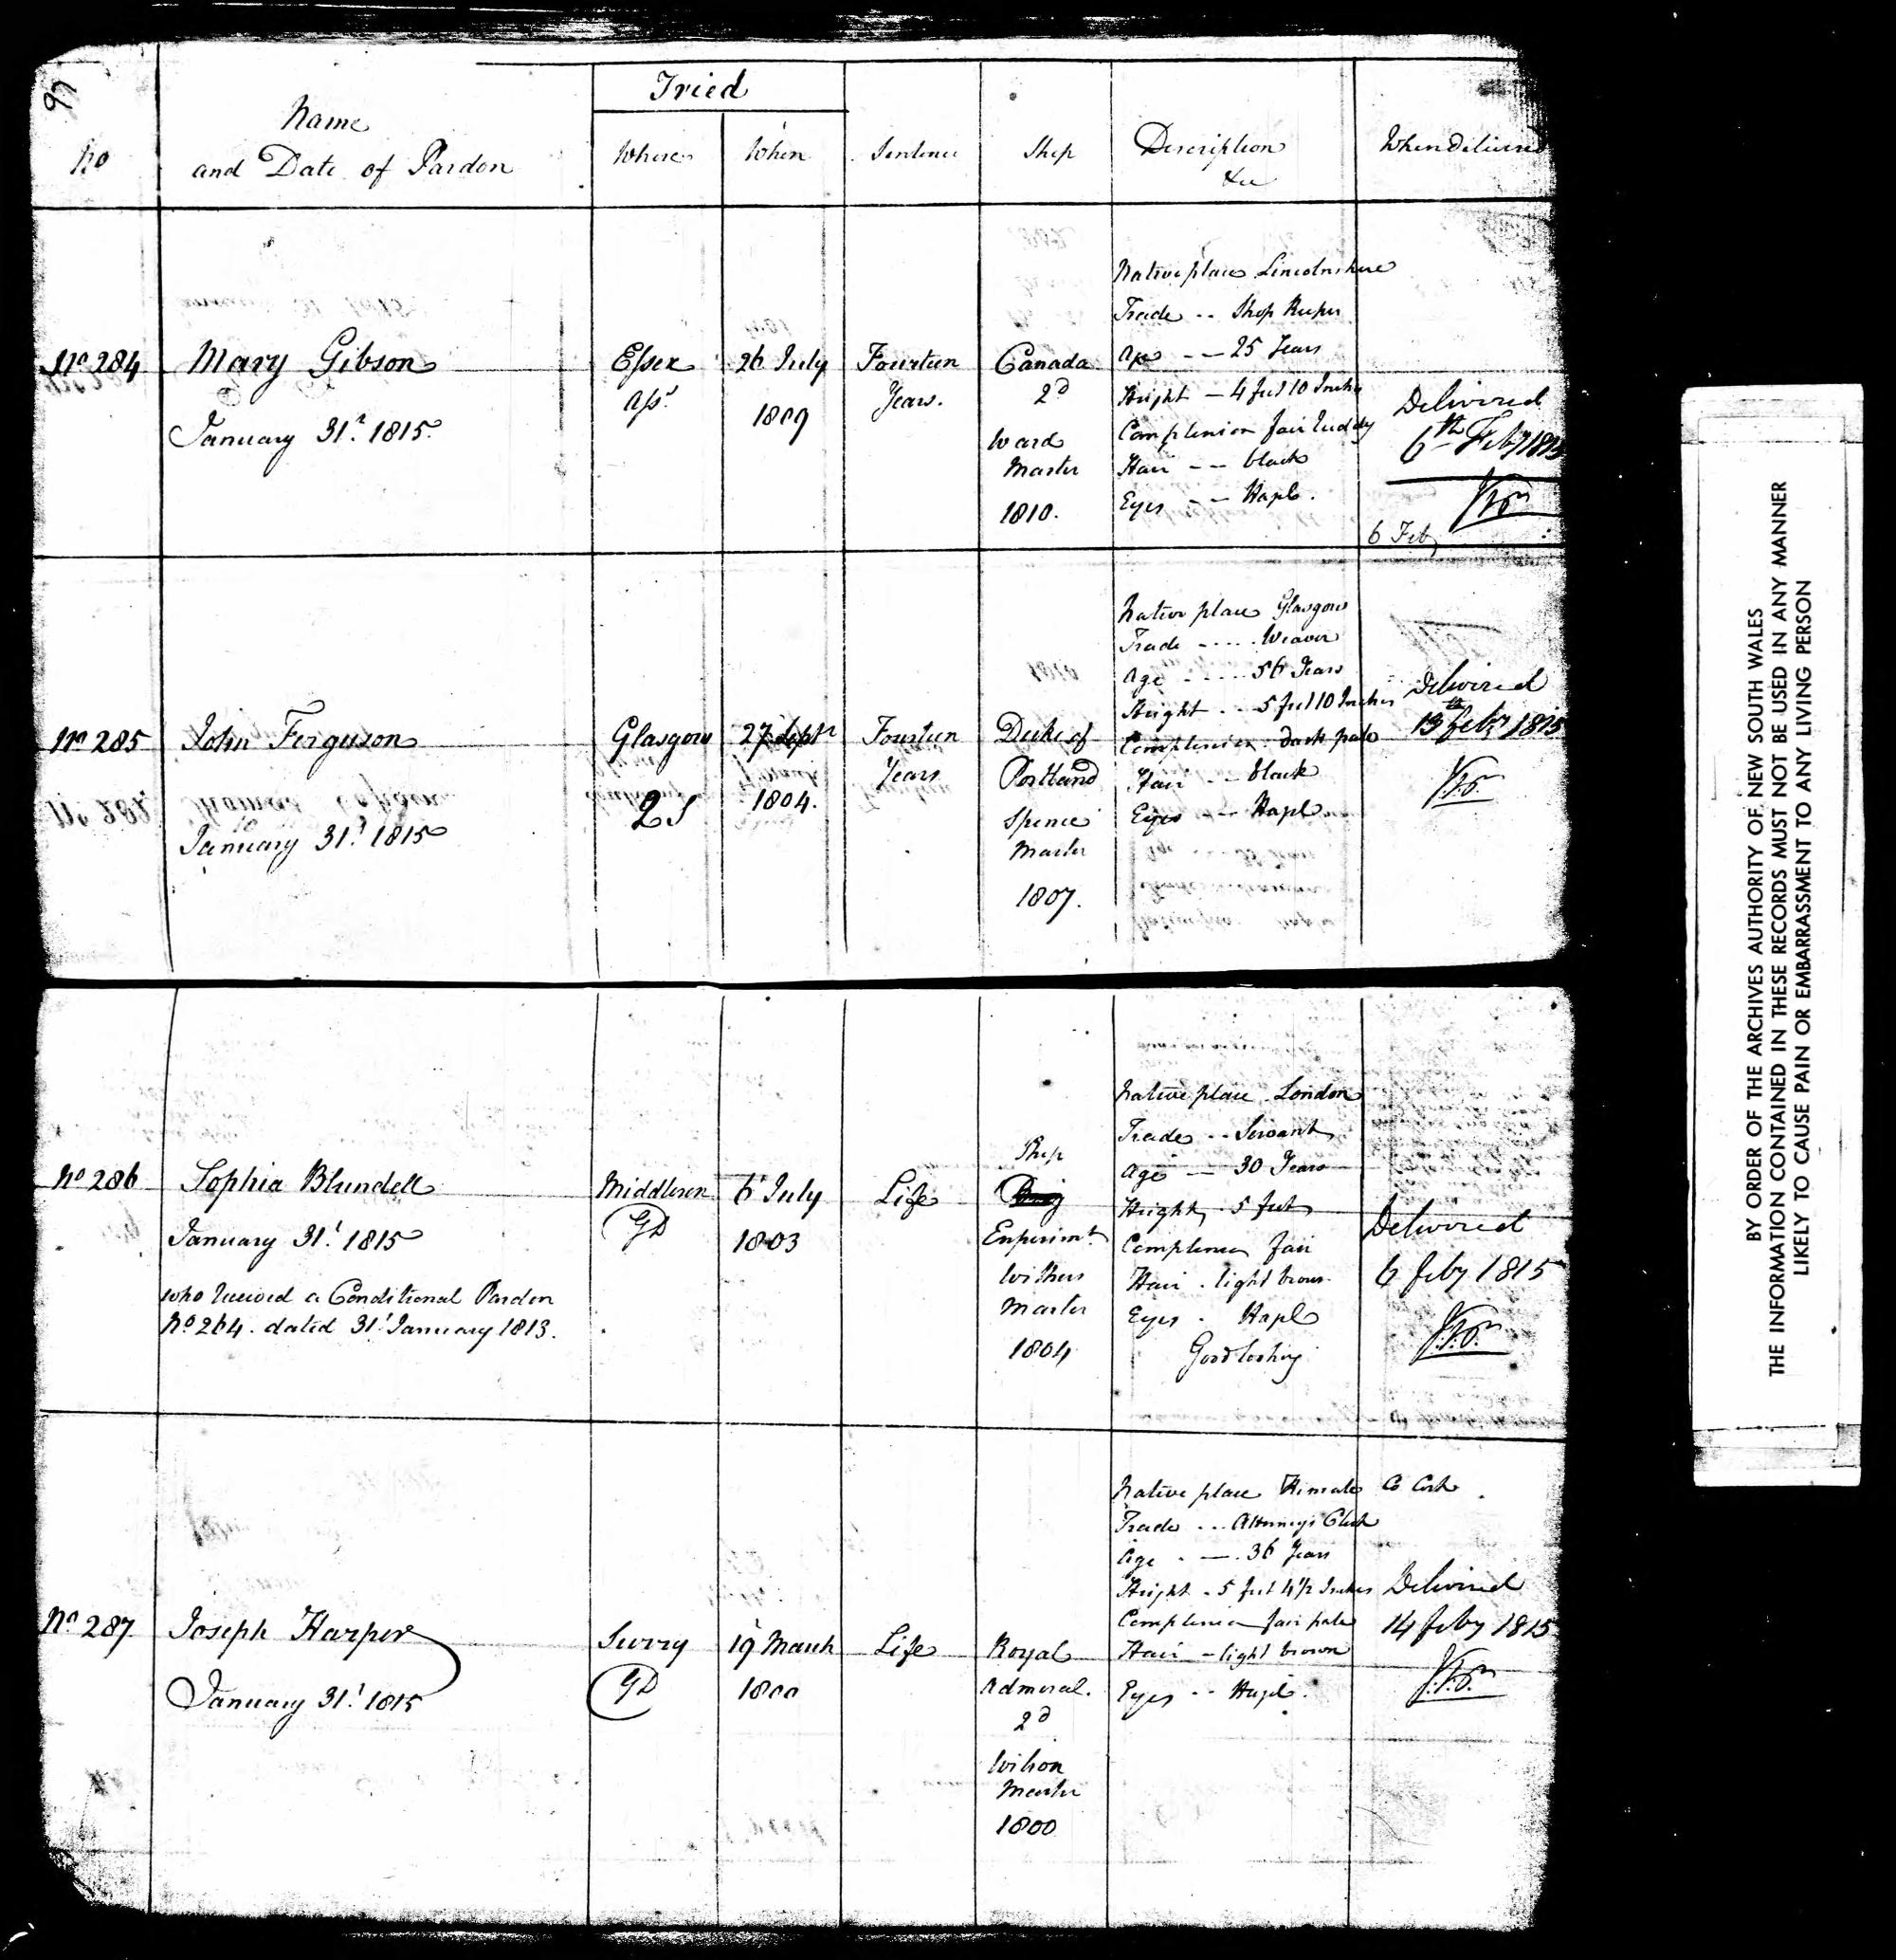 97
Tried
No
Name
and Date of Pardon
Where
When
Sentence
Ship
Description
&c
When Delivered
No 284
Mary Gibson
January 31st 1815.
Essex
Asss
26 July
1809
Fourteen
Years.
Canada
2d
Ward
Master
1810.
Native place Lincolnshire
Trade -- Shop Keeper
Age -- 25 Years
Height - 4 feet 10 Inches
Complexion fair ruddy
Hair -- black
Eyes -- Hazle.
Delivered
6th Feby 1815
6 Feby
No 285
John Ferguson
January 31st 1815
Glasgow
27 Septr
1804.
Fourteen
Years
Duke of
Portland
Spence
Master
1807.
Native place Glasgow
Trade ---- Weaver
Age ---- 56 Years
Height -- 5 feet 10 Inches
Complexion - dark pale
Hair -- black
Eyes -- Hazle
Delivered
13th feby 1815
No 286
Sophia Blundell
January 31st 1815
who received a Conditional Pardon
No 264. dated 31st January 1813.
Middlesex
GD
6 July
1803
Life
Ship
Brig
Experimt
Withers
Master
1804
Native place London
Trade -- Servant
Age -- 30 Years
Height, 5 feet
Complexion fair
Hair - light brown
Eyes - Hazle
Good looking
Delivered
6 feby 1815
No 287
Joseph Harper
January 31st 1815
Surry
GD
19 March
1800
Life
Royal
Admiral.
2d
Wilson
Master
1800
Native place Kinsale Co Cork
Trade --- Attorneys Clerk
Age - -- 36 Years
Height - 5 feet 4 1/2 Inches
Complexion fair pale
Hair - light brown
Eyes -- Hazle.
Delivered
14 feby 1815
BY ORDER OF THE ARCHIVES AUTHORITY OF NEW SOUTH WALES
THE INFORMATION CONTAINED IN THESE RECORDS MUST NOT BE USED IN ANY MANNER
LIKELY TO CAUSE PAIN OR EMBARRASSMENT TO ANY LIVING PERSON